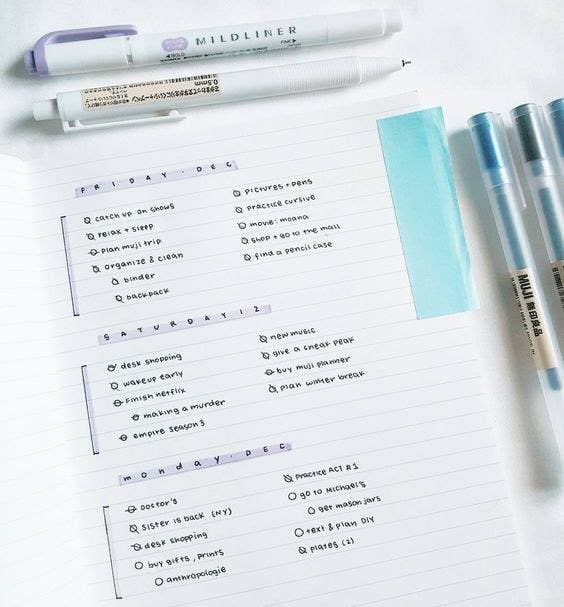 MILDLINER
BOLD
FINE
0.5mm
MUJI 無印良品
FRIDAY. DEC
catch up on shows
relax + sleep
plan muji trip
organize & clean
binder
backpack
pictures + pens
practice cursive
movie: moana
shop + go to the mall
find a pencil case
SATURDAY 12
desk shopping
wakeup early
Finish netflix
making a murder
empire season 3
new music
give a sneak peak
buy muji planner
plan winter break
monday. DEC
Doctor's
Sister is back (NY)
desk shopping
buy gifts, prints
anthropologie
Practice ACT #1
go to Michael's
get mason jars
text & plan DIY
plates (2)